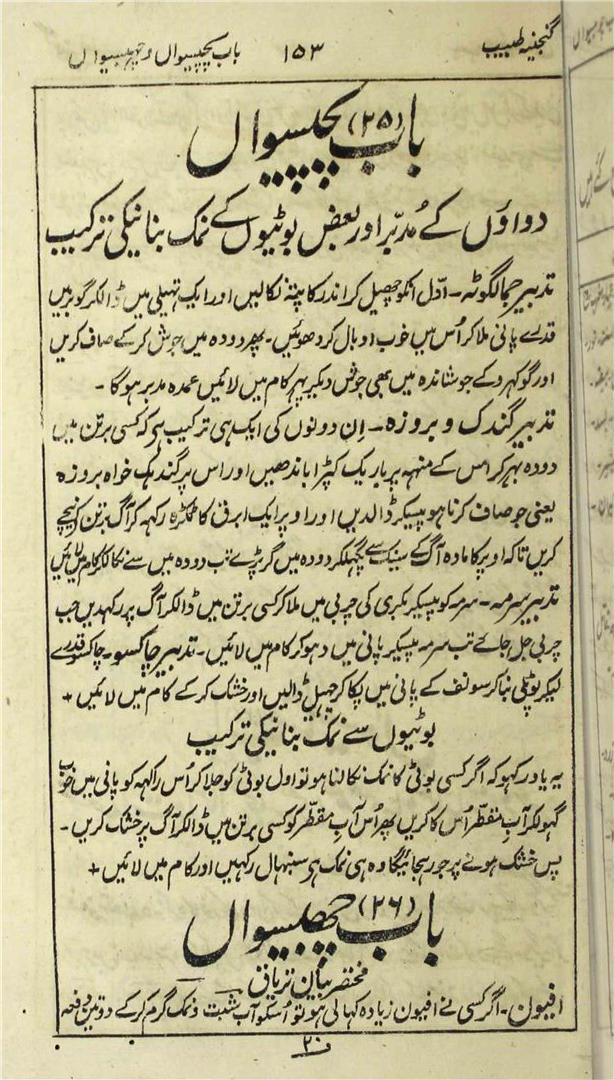 گنجینہ طبیب ۱۵۳ باب پچیسواں و چھبیسواں
باب (۲۵) پچیسواں
دواؤں کے مُدبّر اور بعض بوٹیوں کے نمک بنانیکی ترکیب
تدبیر جمالگوٹہ۔ اوّل انکو چھیل کر اندر کا پتّہ نکالیں اور ایک تھیلی میں ڈالکر گوبر میں
قدرے پانی ملا کر اُس میں خوب اوبال کر دھوئیں۔ پھر دودہ میں جوش کر کے صاف کریں
اور گوکہرو کے جوشاندہ میں بھی جوش دیکر پہر کام میں لائیں عمدہ مدبر ہوگا۔
تدبیر گندک و بروزہ۔ اِن دونوں کی ایک ہی ترکیب ہی کہ کسی برتن میں
دودہ بہر کر اس کے منہہ پر باریک کپڑا باندھیں اور اس پر گندہک خواہ بروزہ
یعنی جو صاف کرنا ہو پیسکر ڈالدیں اور اوپر ایک ابرق کا ٹکڑہ رکہہ کر آگ برتن کے نیچے
کریں تاکہ اوپر کا مادہ آگ کے سینک سے پگہلکر دودہ میں گر پڑے تب دودہ میں سے نکالکر کام میں لائیں
تدبیر سرمہ۔ سرمہ کو پیسکر بکری کی چربی میں ملا کر کسی برتن میں ڈالکر آگ پر رکہدیں جب
چربی جل جائے تب سرمہ پیسکر پانی میں دہو کر کام میں لائیں۔ تدبیر چاکسو۔ چاکسو قدرے
لیکر پوٹلی بنا کر سونف کے پانی میں پکا کر چھیل ڈالیں اور خشک کر کے کام میں لائیں +
بوٹیوں سے نمک بنانیکی ترکیب
یہ یاد رکہو کہ اگر کسی بوٹی کا نمک نکالنا ہو تو اول بوٹی کو جلا کر اُس راکہہ کو پانی میں خوب
گہولکر آب مقطّر اُس کا کریں پھر اُس آبِ مقطّر کو کسی برتن میں ڈالکر آگ پر خشک کریں۔
پس خشک ہونے پر جو رہجائیگا وہ ہی نمک ہی سنبہال رکہیں اور کام میں لائیں +
باب (۲۶) چھبیسواں
مختصر بیان تریاق
افیون۔ اگر کسی نے افیون زیادہ کہا لی ہو تو اُسکو آب شبت و نمک گرم کر کے دو تین دفعہ
۲۰